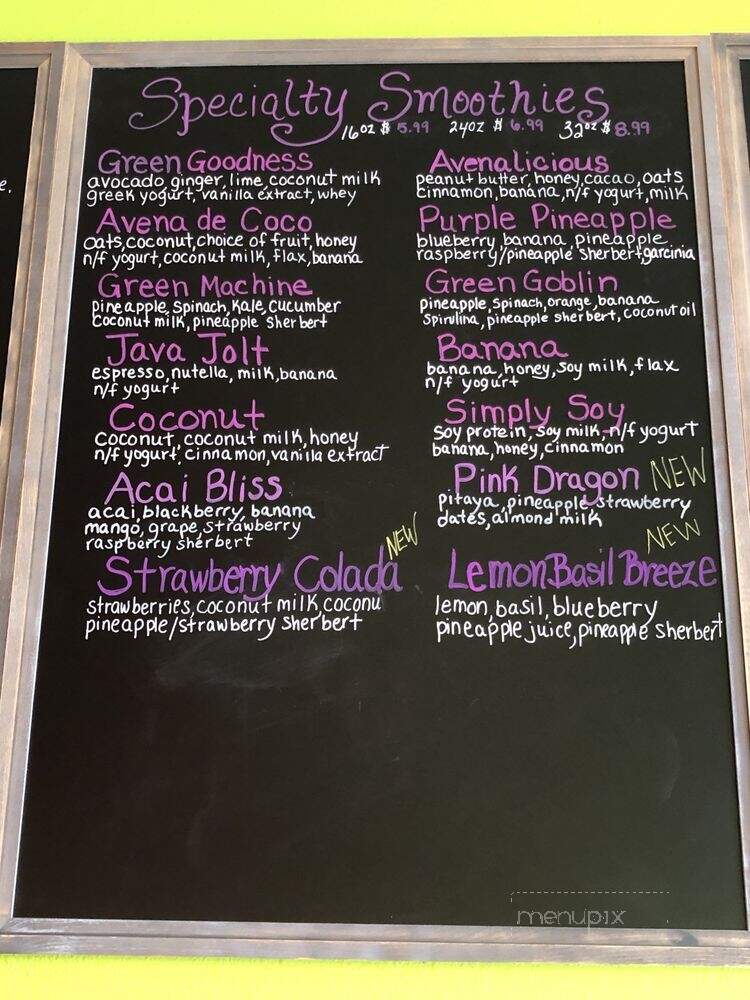 Specialty Smoothies
16oz $ 5.99 24oz $ 6.99 32oz $ 8.99
Green Goodness
avocado, ginger, lime, coconut milk
greek yogurt, vanilla extract, whey
Avena de Coco
oats, coconut, choice of fruit, honey
n/f yogurt, coconut milk, flax, banana
Green Machine
pineapple, spinach, kale, cucumber
coconut milk, pineapple sherbert
Java Jolt
espresso, nutella, milk, banana
n/f yogurt
Coconut
coconut, coconut milk, honey
n/f yogurt, cinnamon, vanilla extract
Acai Bliss
acai, blackberry, banana
mango, grape, strawberry
raspberry sherbert
NEW
Strawberry Colada
strawberries, coconut milk, coconu
pineapple/strawberry sherbert
Avenalicious
peanut butter, honey, cacao, oats
cinnamon, banana, n/f yogurt, milk
Purple Pineapple
blueberry, banana, pineapple
raspberry/pineapple sherbert, garcinia
Green Goblin
pineapple, spinach, orange, banana
spirulina, pineapple sherbert, coconut oil
Banana
banana, honey, soy milk, flax
n/f yogurt
Simply Soy
soy protein, soy milk, n/f yogurt
banana, honey, cinnamon
Pink Dragon NEW
pitaya, pineapple, strawberry
dates, almond milk
NEW
Lemon Basil Breeze
lemon, basil, blueberry
pineapple juice, pineapple sherbert
e.
menupix